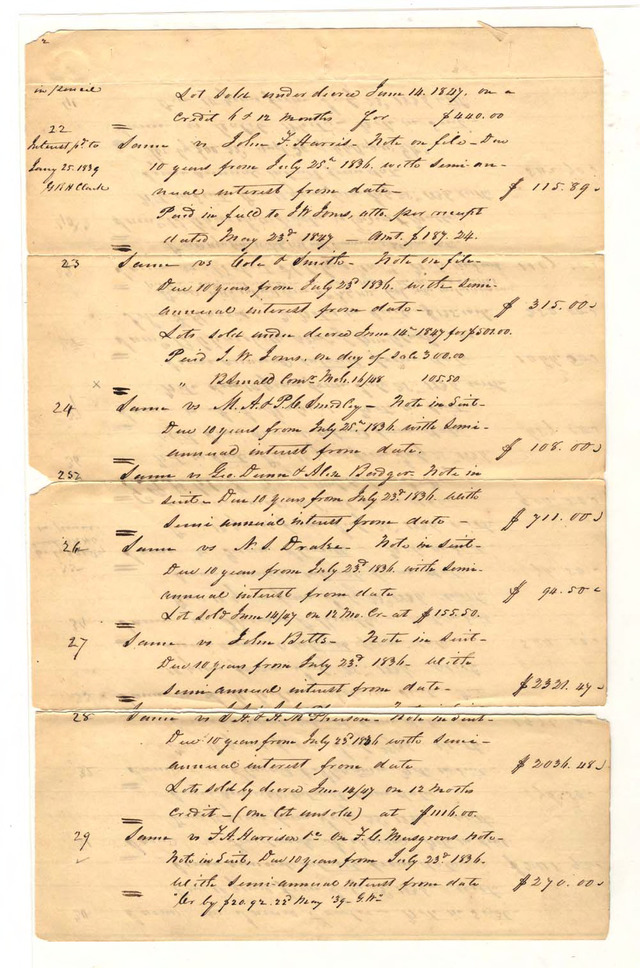 2
in pencil
Lot sold under decree June 14. 1847, on a
credit 6 & 12 Months for $440.00
22
Interest pd to
Jany 25. 1839
G R H Clark
Same vs John F. Harris - Note on file - Due
10 years from July 25th 1836. with semi an-
nual interest from date - $ 115.89
Paid in full to J W Jones, atto. per receipt
dated May 23d 1847 - Amt. $187.24.
23 Same vs Cole & Smith - Note on file -
Due 10 years from July 23d 1836. with semi-
annual interest from date - $ 315.00
Lots sold under decree June 14th 1847 for $501.00.
Paid J. W. Jones, on day of sale 300.00
" B Small Comr. Mch. 16/48 105.50
x
24 Same vs M. A. & P. C. Smedley - Note in Suit -
Due 10 years from July 25th 1836. with Semi-
annual interest from date. $ 108.00
25 Same vs Geo. Dunn & Alex Badger. Note in
suit - Due 10 years from July 23d. 1836. with
Semi annual interest from date - $ 711.00
26 Same vs N. S. Drake - Note in Suit -
Due 10 years from July 23d 1836. with Semi-
annual interest from date $ 94.50
Lot sold June 14/47 on 12 Mo. Cr. at $155.50.
27 Same vs John Betts - Note in suit -
Due 10 years from July 23d. 1836 - with
semi-annual interest from date - $2321.47
28 Same vs Pherson - Note in Suit -
Due 10 years from July 23d 1836 with semi-
annual interest from date $2036.48
Lots sold by decree June 14/47 on 12 Months
credit - (one lot unsold) at $1116.00.
29 Same vs F. A. Harrison &c On F. C. Musgroves Note -
Note in Suit, Due 10 years from July 23d 1836.
with semi-annual interest from date $270.00
"Cr by $20.92. 22d May '39 - G.W"